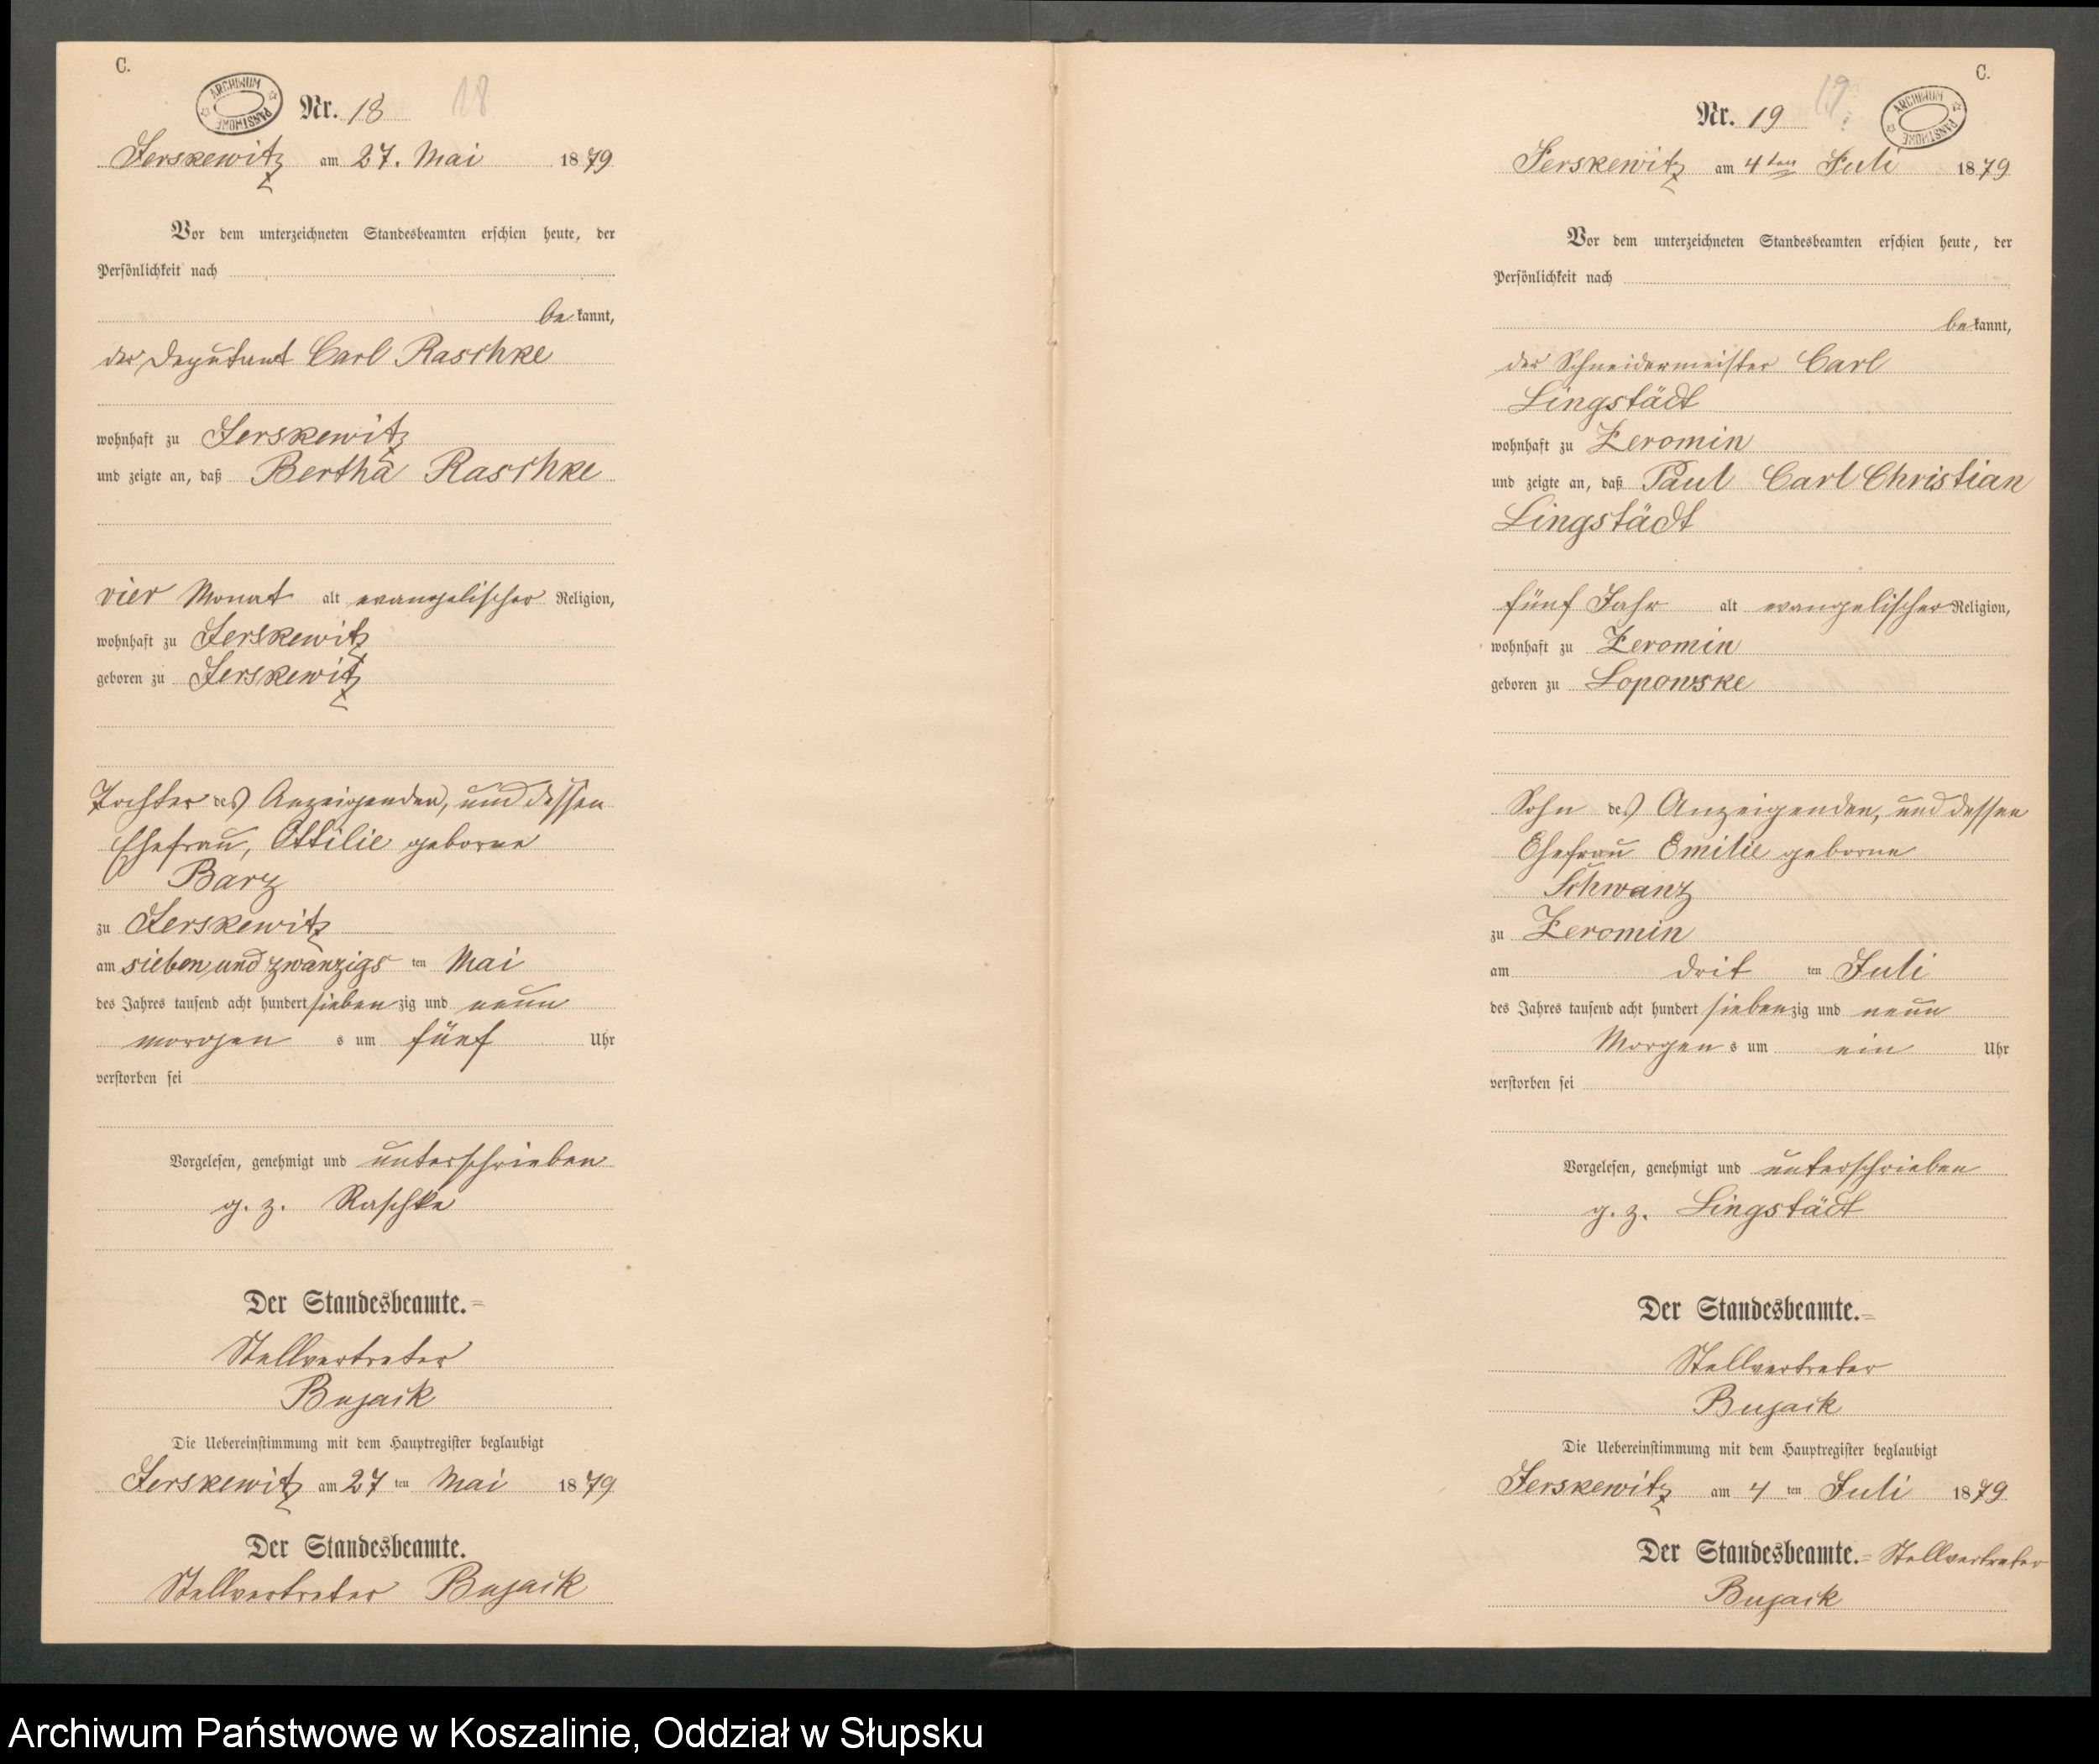 C.
ARCHIWUM PAŃSTWOWE
Nr. 18 18
Jerskewitz am 27. Mai 1879
Vor dem unterzeichneten Standesbeamten erschien heute, der
Persönlichkeit nach
be kannt,
der Deputant Carl Raschke
wohnhaft zu Jerskewitz
und zeigte an, daß Bertha Raschke
vier Monat alt evangelischer Religion,
wohnhaft zu Jerskewitz
geboren zu Jerskewitz
Tochter des Anzeigenden, und dessen
Ehefrau, Ottilie geborne
Barz
zu Jerskewitz
am sieben und zwanzigs ten Mai
des Jahres tausend acht hundert sieben zig und neun
morgen s um fünf Uhr
verstorben sei
Vorgelesen, genehmigt und unterschrieben
g. z. Raschke
Der Standesbeamte.=
Stellvertreter
Bujack
Die Uebereinstimmung mit dem Hauptregister beglaubigt
Jerskewitz am 27 ten Mai 1879
Der Standesbeamte.
Stellvertreter Bujack
C.
Nr. 19 19
ARCHIWUM PAŃSTWOWE
Jerskewitz am 4ten Juli 1879
Vor dem unterzeichneten Standesbeamten erschien heute, der
Persönlichkeit nach
be kannt,
der Schneidermeister Carl
Lingstädt
wohnhaft zu Zeromin
und zeigte an, daß Paul Carl Christian
Lingstädt
fünf Jahr alt evangelischer Religion,
wohnhaft zu Zeromin
geboren zu Lopowske
Sohn des Anzeigenden, und dessen
Ehefrau Emilie geborne
Schwanz
zu Zeromin
am drit ten Juli
des Jahres tausend acht hundert sieben zig und neun
Morgen s um ein Uhr
verstorben sei
Vorgelesen, genehmigt und unterschrieben
g. z. Lingstädt
Der Standesbeamte.=
Stellvertreter
Bujack
Die Uebereinstimmung mit dem Hauptregister beglaubigt
Jerskewitz am 4 ten Juli 1879
Der Standesbeamte.= Stellvertreter
Bujack
Archiwum Państwowe w Koszalinie, Oddział w Słupsku